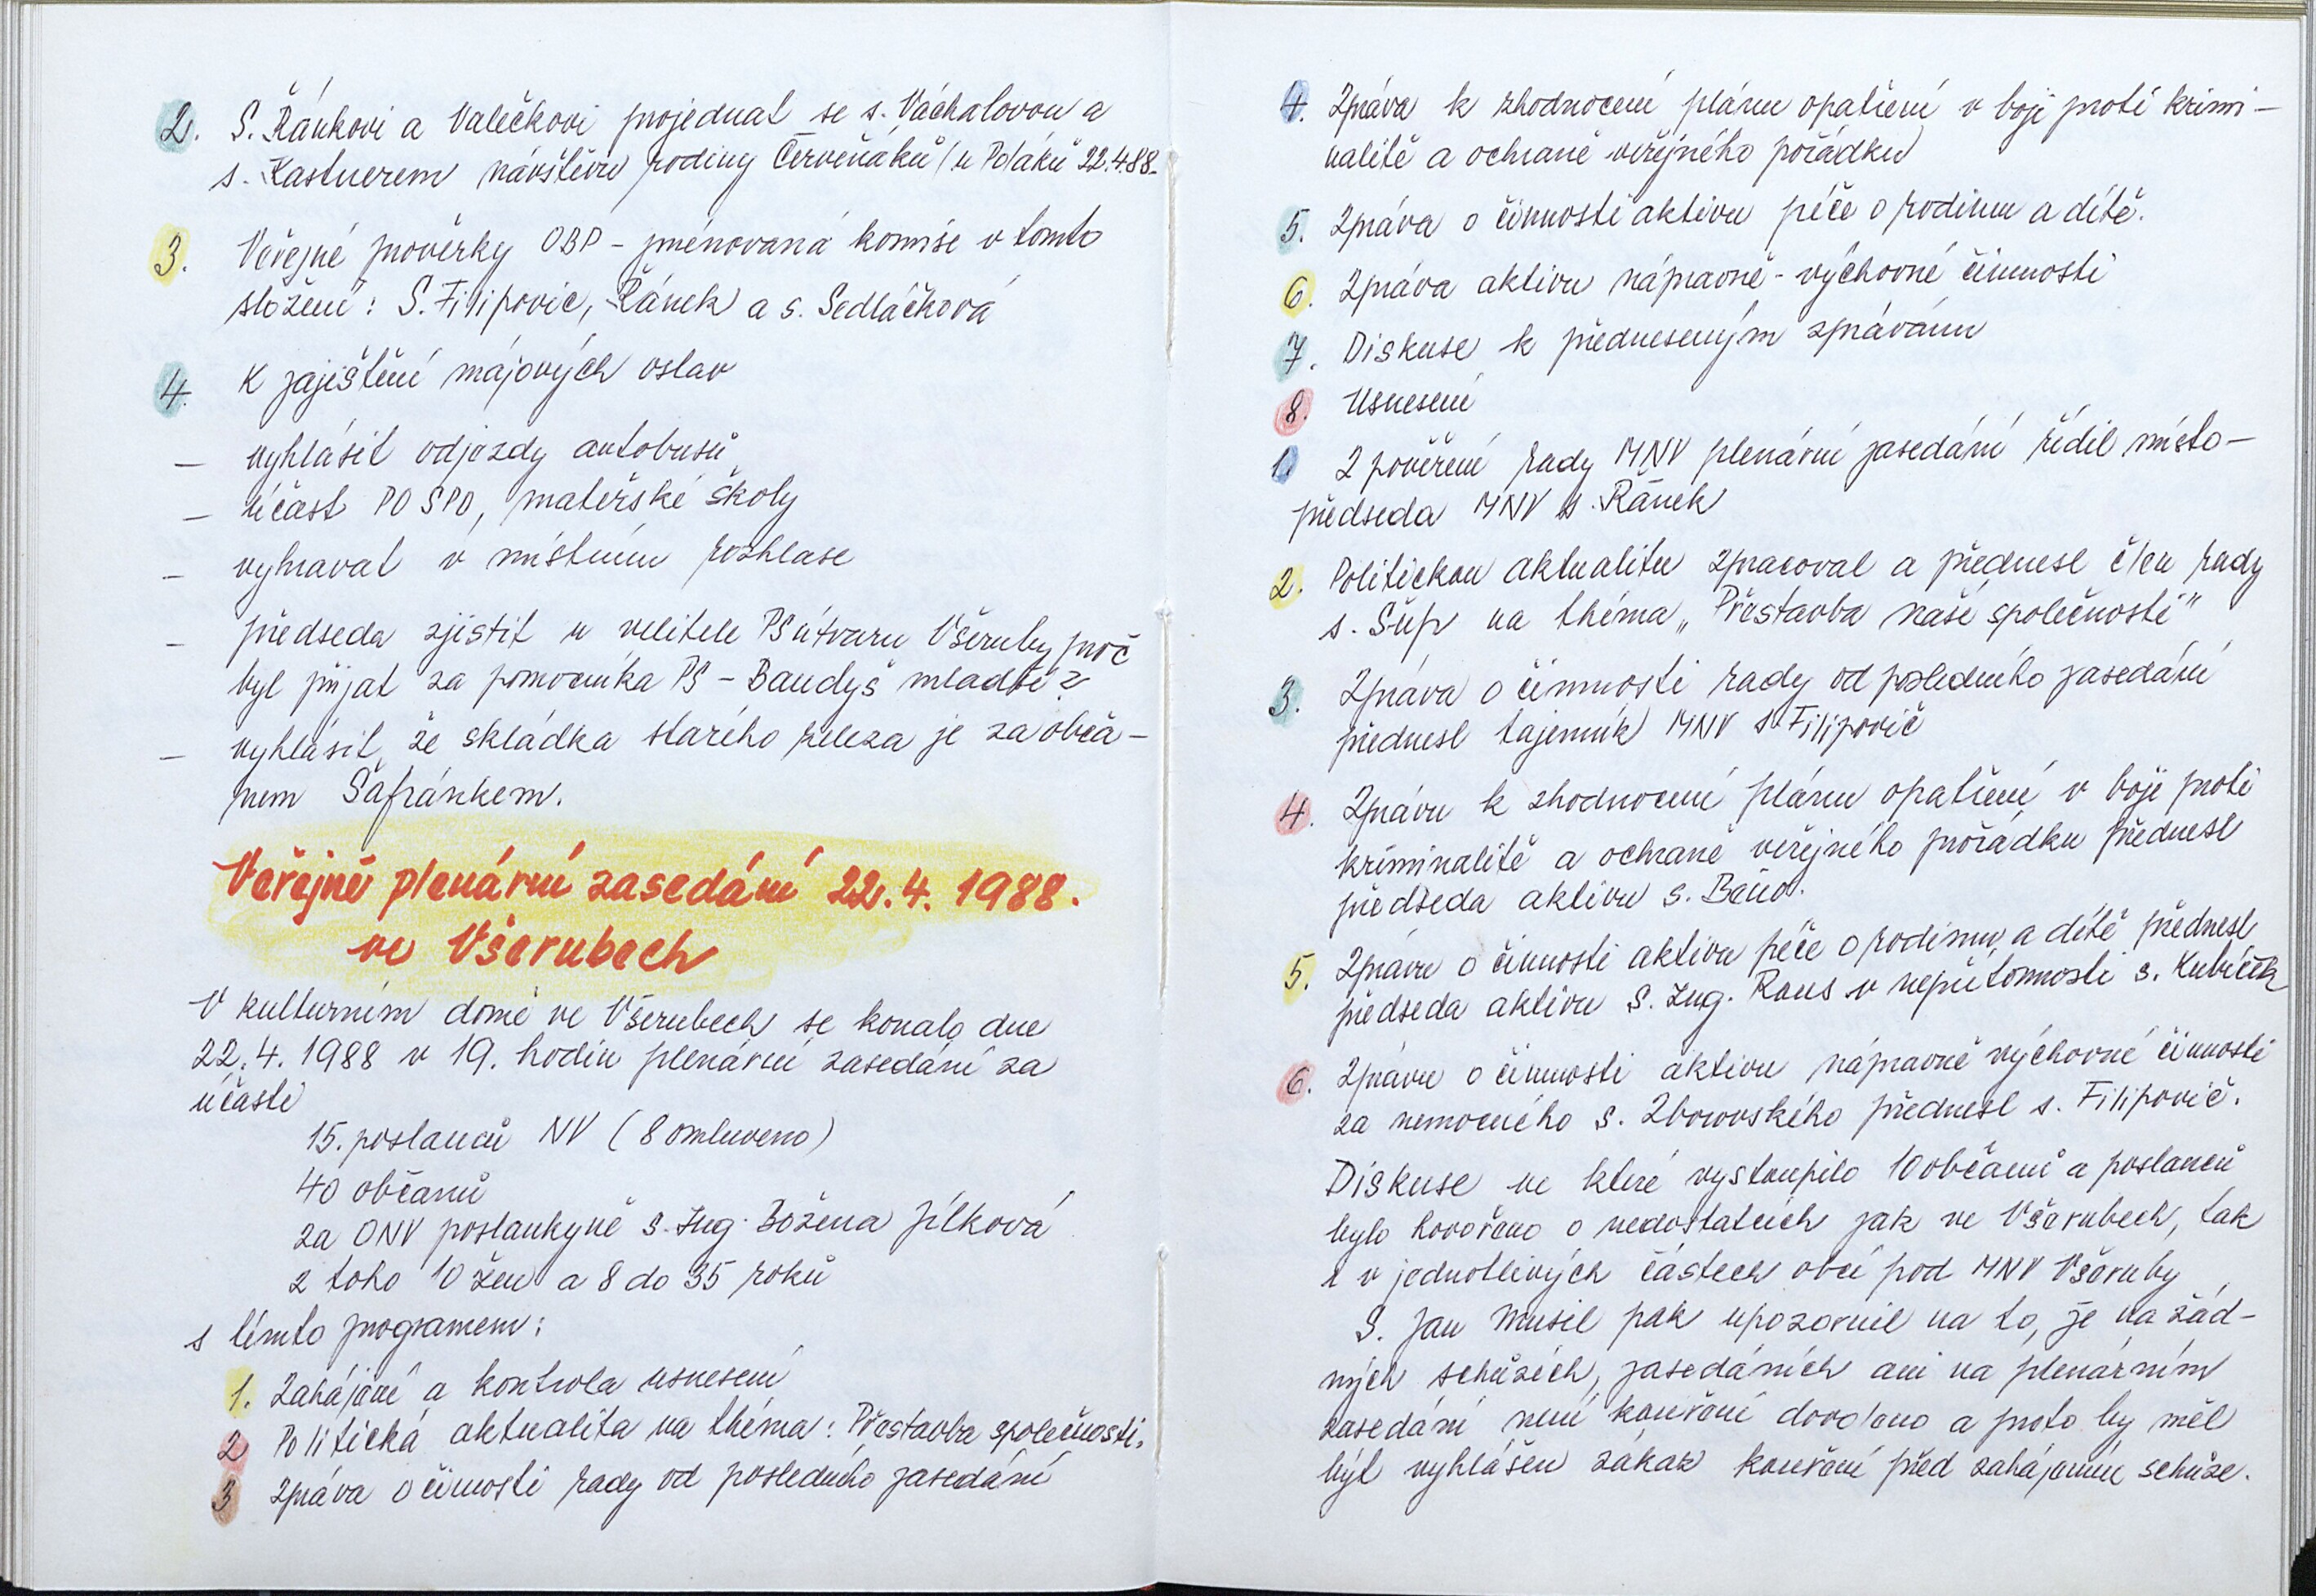 2. S. Řánkovi a Valečkovi projednat se s. Váchalovou a
s. Kastnerem návštěvu rodiny Červeňáků (u Poláků 22.4.88.
3. Veřejné prověrky OBP - jmenovaná komise v tomto
složení: S. Filipovic, Řánek a s. Sedláčková
4. K zajištění májových oslav
— vyhlásit odjezdy autobusů
— účast PO SPO, mateřské školy
— vyhravat v místním rozhlase
— předseda zjistit u velitele PS útvaru Všeruby proč
byl přijat za pomocníka PS - Baudyš mladší?
— vyhlásit, že skládka starého železa je za obča-
nem Šafránkem.
Veřejné plenární zasedání 22.4. 1988.
ve Všerubech
V kulturním domě ve Všerubech se konalo dne
22.4. 1988 v 19. hodin plenární zasedání za
účasti
15. poslanců NV (8 omluveno)
40 občanů
za ONV poslankyně s. Ing. Božena Jílková
z toho 10 žen a 8 do 35 roků
s tímto programem:
1. Zahájení a kontrola usnesení
2 Politická aktualita na théma: Přestavba společnosti.
3 Zpráva o činosti rady od posledního zasedání
4. Zpráva k zhodnocení plánu opatření v boji proti krimi-
nalitě a ochraně veřejného pořádku
5. Zpráva o činnosti aktivu péče o rodinu a dítě.
6. Zpráva aktivu nápravně - výchovné činnosti
7. Diskuse k předneseným zprávám
8. Usnesení
1. Z pověření rady MNV plenární zasedání řídil místo-
předseda MNV s. Řánek
2. Politickou aktualitu zpracoval a přednesl člen rady
s. Šúp na théma „Přestavba naší společnosti"
3. Zpráva o činnosti rady od posledního zasedání
přednesl tajemník MNV s. Filipovič
4. Zprávu k zhodnocení plánu opatření v boji proti
kriminalitě a ochraně veřejného pořádku přednesl
předseda aktivu s. Baňo.
5. Zprávu o činnosti aktivu péče o rodinu a dítě přednesl
předseda aktivu S. Ing. Rous v nepřítomnosti s. Kubíček
6. Zprávu o činnosti aktivu nápravně výchovné činnosti
za nemocného s. Zborovského přednesl s. Filipovič.
Diskuse ve které vystoupilo 10 občanů a poslanců
bylo hovořeno o nedostatcích jak ve Všerubech, tak
i v jednotlivých částech obcí pod MNV Všeruby
S. Jan Musil pak upozornil na to, že na žád-
ných schůzích, zasedáních ani na plenárním
zasedání není kouření dovoleno a proto by měl
být vyhlášen zákaz kouření před zahájením schůze.